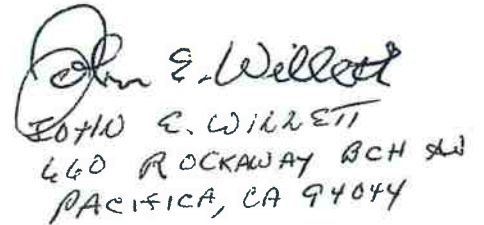 John E. Willett
JOHN E. WILLETT
660 ROCKAWAY BCH AV
PACIFICA, CA 94044